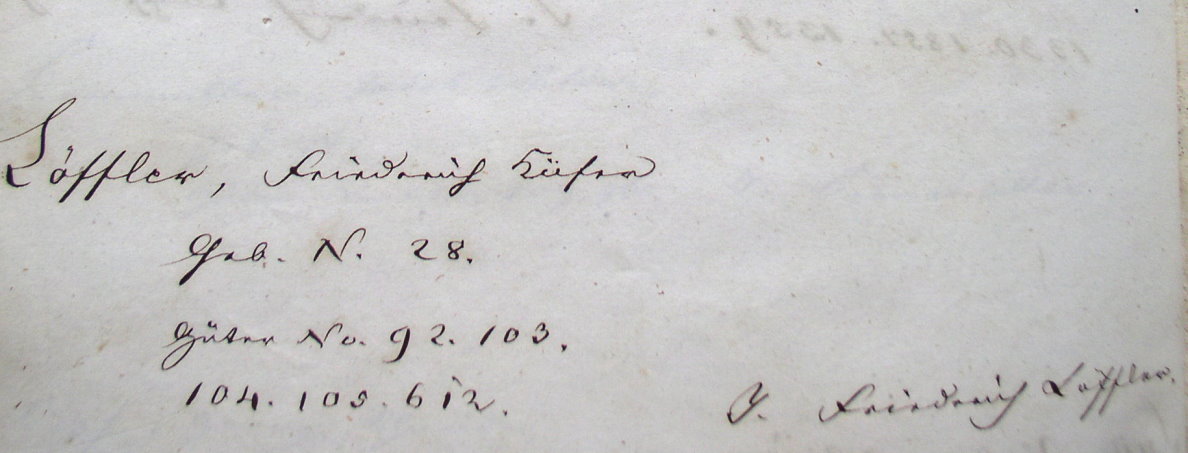 Löffler, Friedrich Küfer
Geb. N. 28.
Güter No. 92. 103.
104. 105. 612.
J. Friedrich Löffler.